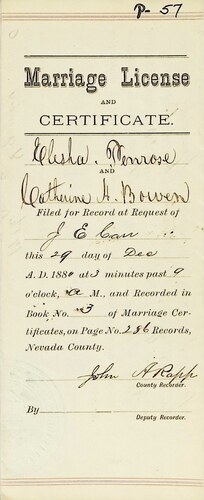 P-57
Marriage License
AND
CERTIFICATE.
Elisha Penrose
AND
Catherine A. Bowen
Filed for Record at Request of
J E Carr
this 29 day of Dec
A. D. 1880 at 3 minutes past 9
o'clock, a M., and Recorded in
Book No. 3 of Marriage Cer-
tificates, on Page No. 286 Records,
Nevada County.
John A Rapp
County Recorder.
By
Deputy Recorder.